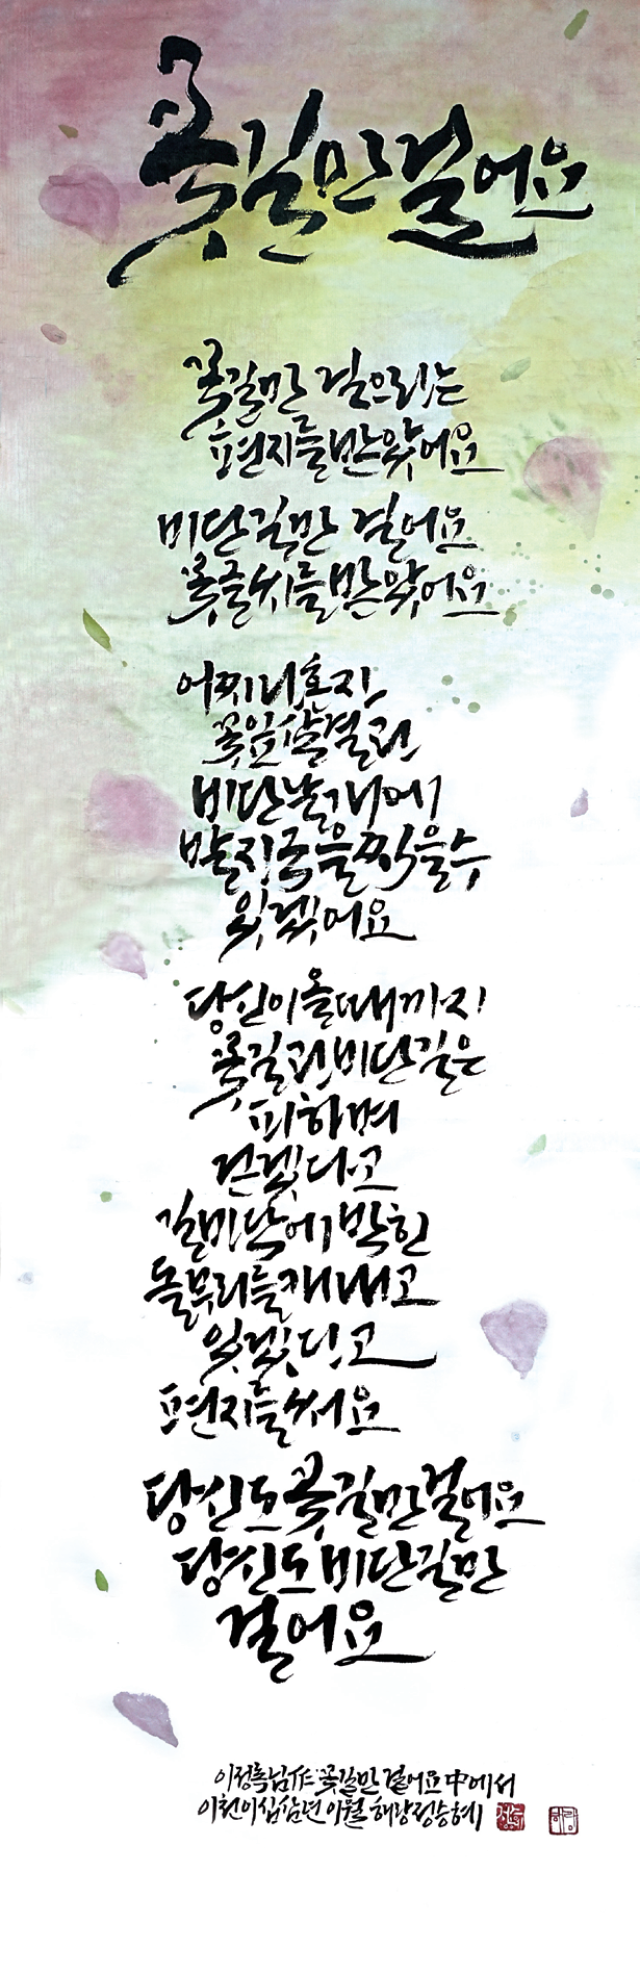 꽃길만 걸어요
꽃길만 걸으라는
편지를 받았어요
비단길만 걸어요
꽃글씨를 받았어요
어찌 나 혼자
꽃잎 살결과
비단 날개에
발자국을 찍을 수
있겠어요
당신이 올 때까지
꽃길과 비단길은
피하며
걷겠다고
길바닥에 박힌
돌부리를 캐내고
있겠다고
편지를 써요
당신도 꽃길만 걸어요
당신도 비단길만
걸어요
이정록님作 꽃길만 걸어요 中에서
이천이십삼년 이월 해랑 정승혜